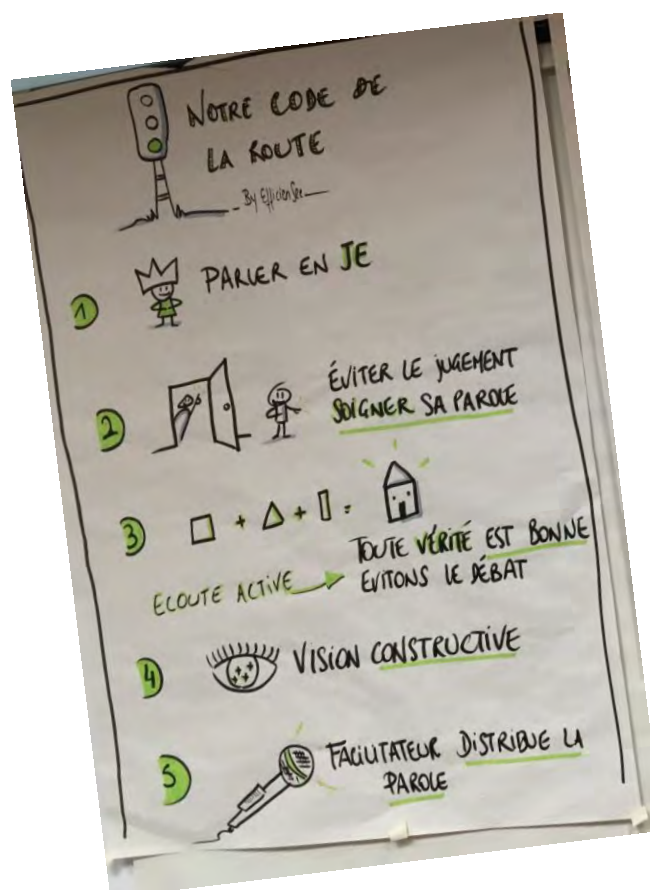 NOTRE CODE DE
LA ROUTE
By EfficienSee
1 PARLER EN JE
2 ÉVITER LE JUGEMENT
SOIGNER SA PAROLE
3 + + =
TOUTE VÉRITÉ EST BONNE
ECOUTE ACTIVE → EVITONS LE DÉBAT
4 VISION CONSTRUCTIVE
5 FACILITATEUR DISTRIBUE LA
PAROLE